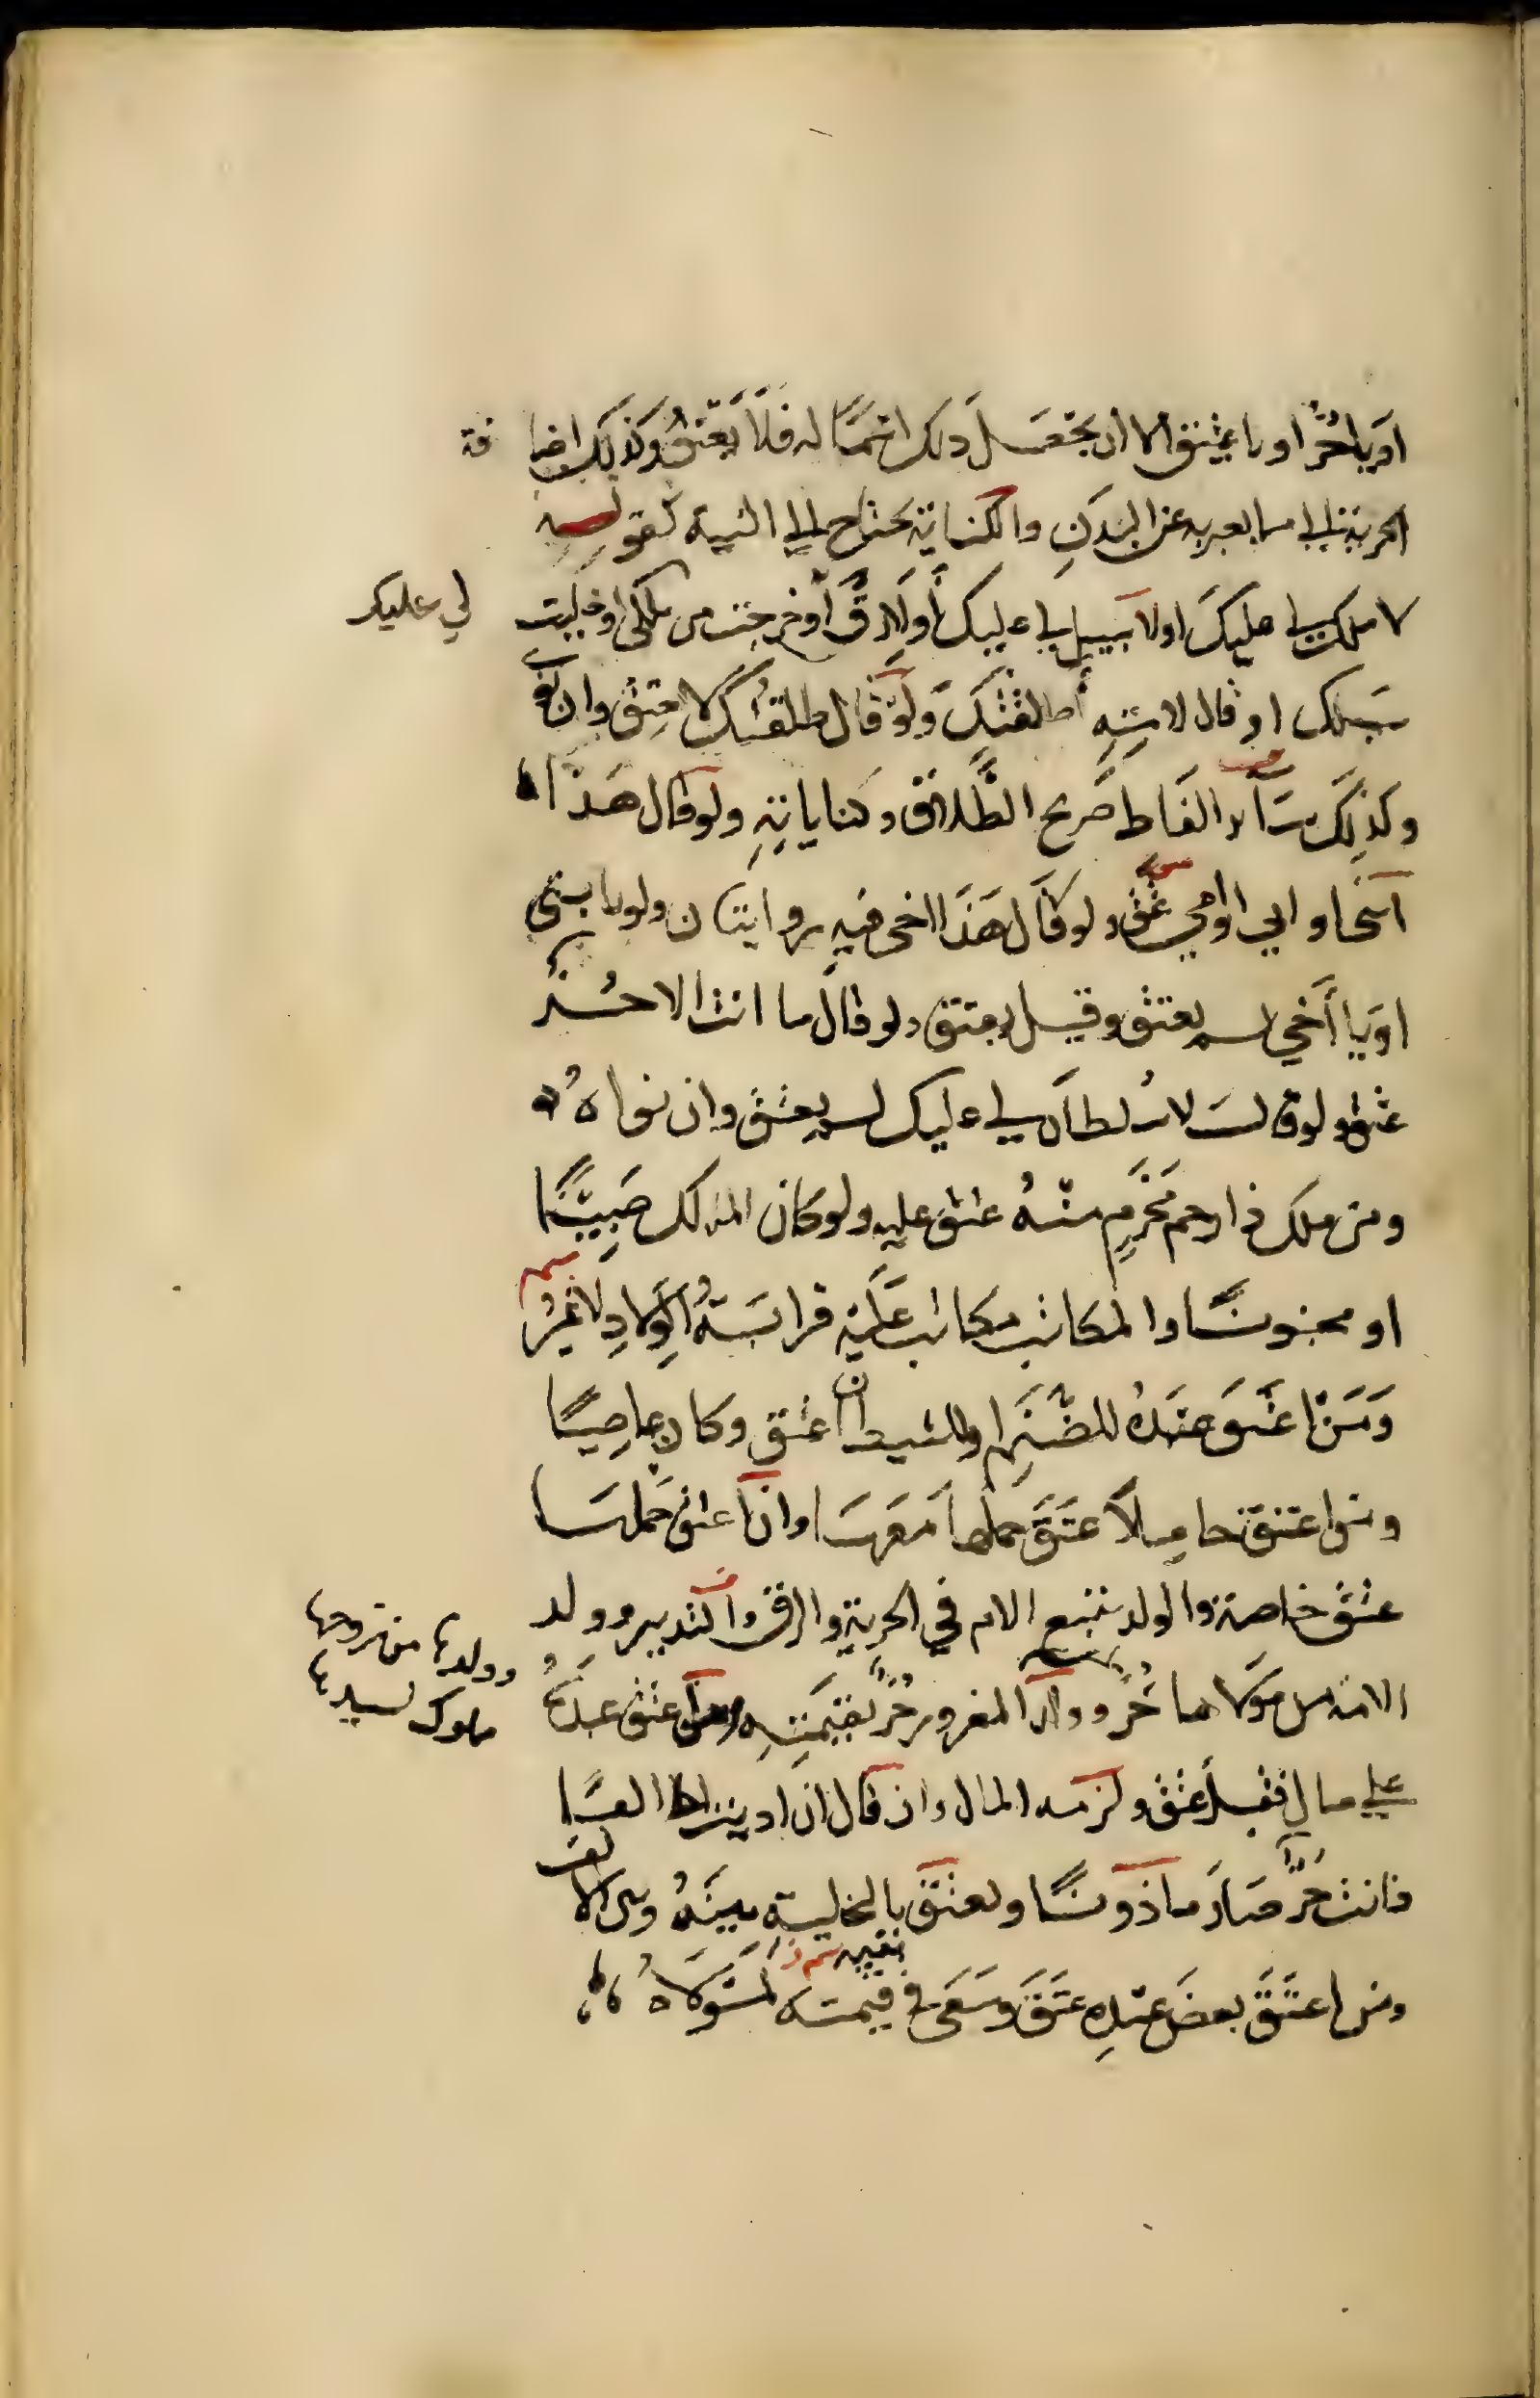 او يا حُرُّ او يا عتيق الا ان يجعَل ذلك اسمًا له فلا يعتقُ وكذلك اضا فة
الحرية الى ما يعبر به عن البدَنِ والكناية يحتاج الى النية كقوله
لا ملك لي عليكَ او لا سبيل لي عليك أو لا رقَّ أو خرجت من ملكي او خليت
لي عليك
سبيلك او قال لامته أطلقتكِ ولَو قال طلقتكِ لا تعتق وان نوى
وكذلك سائر الفاظ صريح الطَّلاق وكناياتِهِ ولو قال هَذا
ابني او ابي او امي عتق ولو قال هَذا اخي فيه روايتان ولو قال يا بني
او يا أخي لم يعتق وقيل يعتق ولو قال ما انت الا حُرٌّ
عتق ولو قال لا سُلطان لي عليك لم يعتق وان نواهُ
ومن ملك ذا رحم مَحْرَمٍ منهُ عتق عليه ولو كان المالك صَبِيًّا
او مجنونًا والمكاتب يتكاتب عَلَيْه قرابَةُ الوِلادِ لا غَيْرُ
سم
وَمَنْ اعتَقَ عبدَهُ للصَّنَمِ او للشيطان عتق وكان عاصيًا
ومن اعتق حامِلاً عَتَقَ حملُها معَها وان اعتق حَملَها
عتق خاصة والولد يتبع الام في الحرية والرق والتدبير وولد
الامة من مَولاها حُرٌّ وولد المغرور حُرٌّ بقيمَتِهِ ومن اعتق عبدَهُ
وولدها من زوجها
مملوك لسيدها
على مالٍ فقبلَ عتق ولزمه المال وان قال ان اديت الي الفًا
فانت حُرٌّ صَارَ ماذونًا ويعتَق بالتخلية بينَهُ وبين الالف
ومن اعتَقَ بعضَ عَبْدِهِ عَتَقَ وسَعَى في بقية قيمته لمَوْلَاهُ